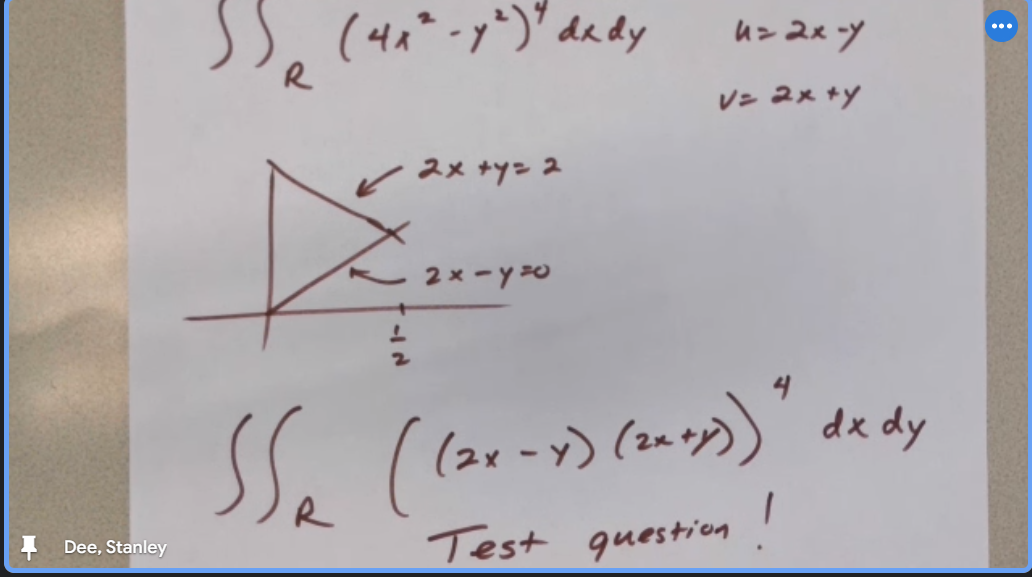 ∬_R (4x² - y²)⁴ dx dy
u = 2x - y
v = 2x + y
2x + y = 2
2x - y = 0
1/2
∬_R ((2x - y) (2x + y))⁴ dx dy
Test question!
Dee, Stanley